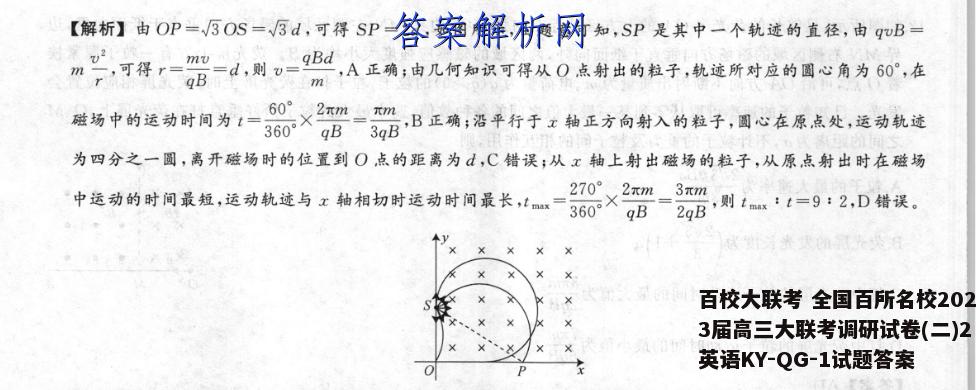 【解析】由 OP=√3 OS=√3 d,可得 SP= 答案解析网 知,SP 是其中一个轨迹的直径,由 qvB=
m v²/r,可得 r=mv/qB=d,则 v=qBd/m,A 正确;由几何知识可得从 O 点射出的粒子,轨迹所对应的圆心角为 60°,在
磁场中的运动时间为 t=60°/360°×2πm/qB=πm/3qB,B 正确;沿平行于 x 轴正方向射入的粒子,圆心在原点处,运动轨迹
为四分之一圆,离开磁场时的位置到 O 点的距离为 d,C 错误;从 x 轴上射出磁场的粒子,从原点射出时在磁场
中运动的时间最短,运动轨迹与 x 轴相切时运动时间最长,tmax=270°/360°×2πm/qB=3πm/2qB,则 tmax∶t=9∶2,D 错误。
y
× × × × ×
× × × × ×
S
O P x
百校大联考 全国百所名校202
3届高三大联考调研试卷(二)2
英语KY-QG-1试题答案